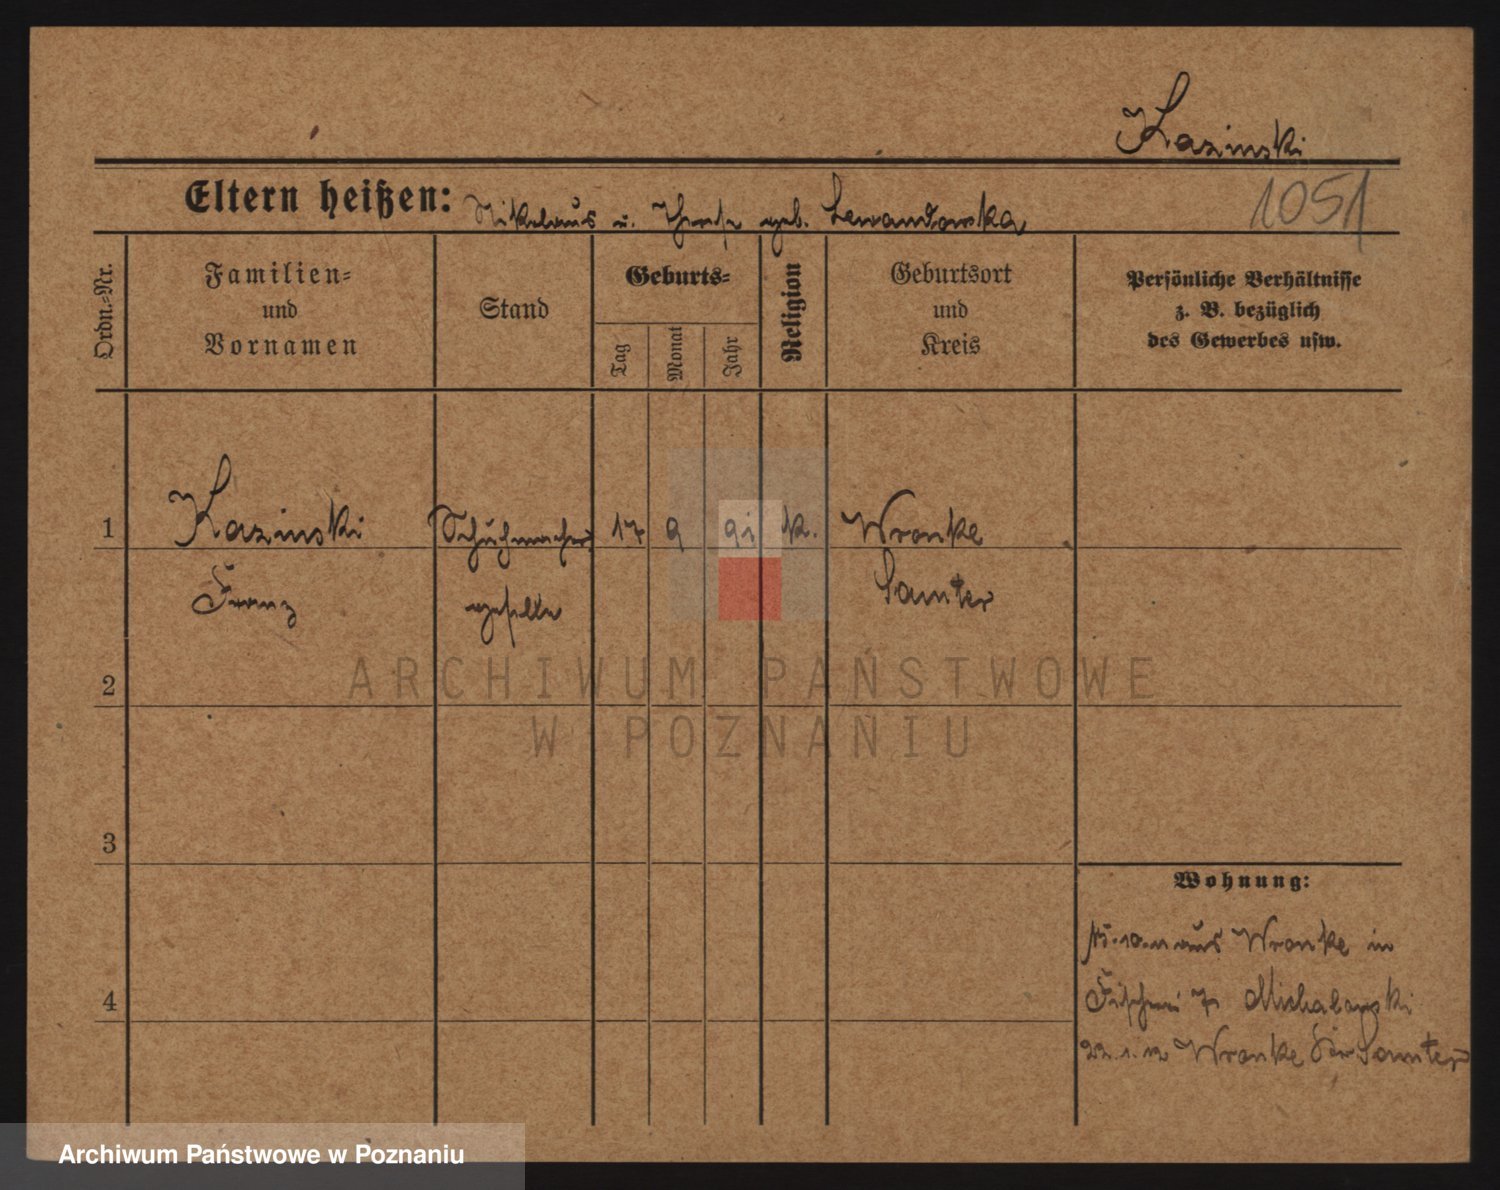 Kazinski
1051
Eltern heißen: Nikolaus u. Therese geb. Lewandowska
Ordn.-Nr.
Familien-
und
Vornamen
Stand
Geburts-
Tag
Monat
Jahr
Religion
Geburtsort
und
Kreis
Persönliche Verhältnisse
z. B. bezüglich
des Gewerbes usw.
1 Kazinski Schuhmacher 17 9 91 k. Wronke
Franz geselle Samter
2
ARCHIWUM PAŃSTWOWE
W POZNANIU
3
Wohnung:
15.10.11 aus Wronke in
Fischerei 7 Michalowski
4
22.1.12 Wronke Kr Samter
Archiwum Państwowe w Poznaniu